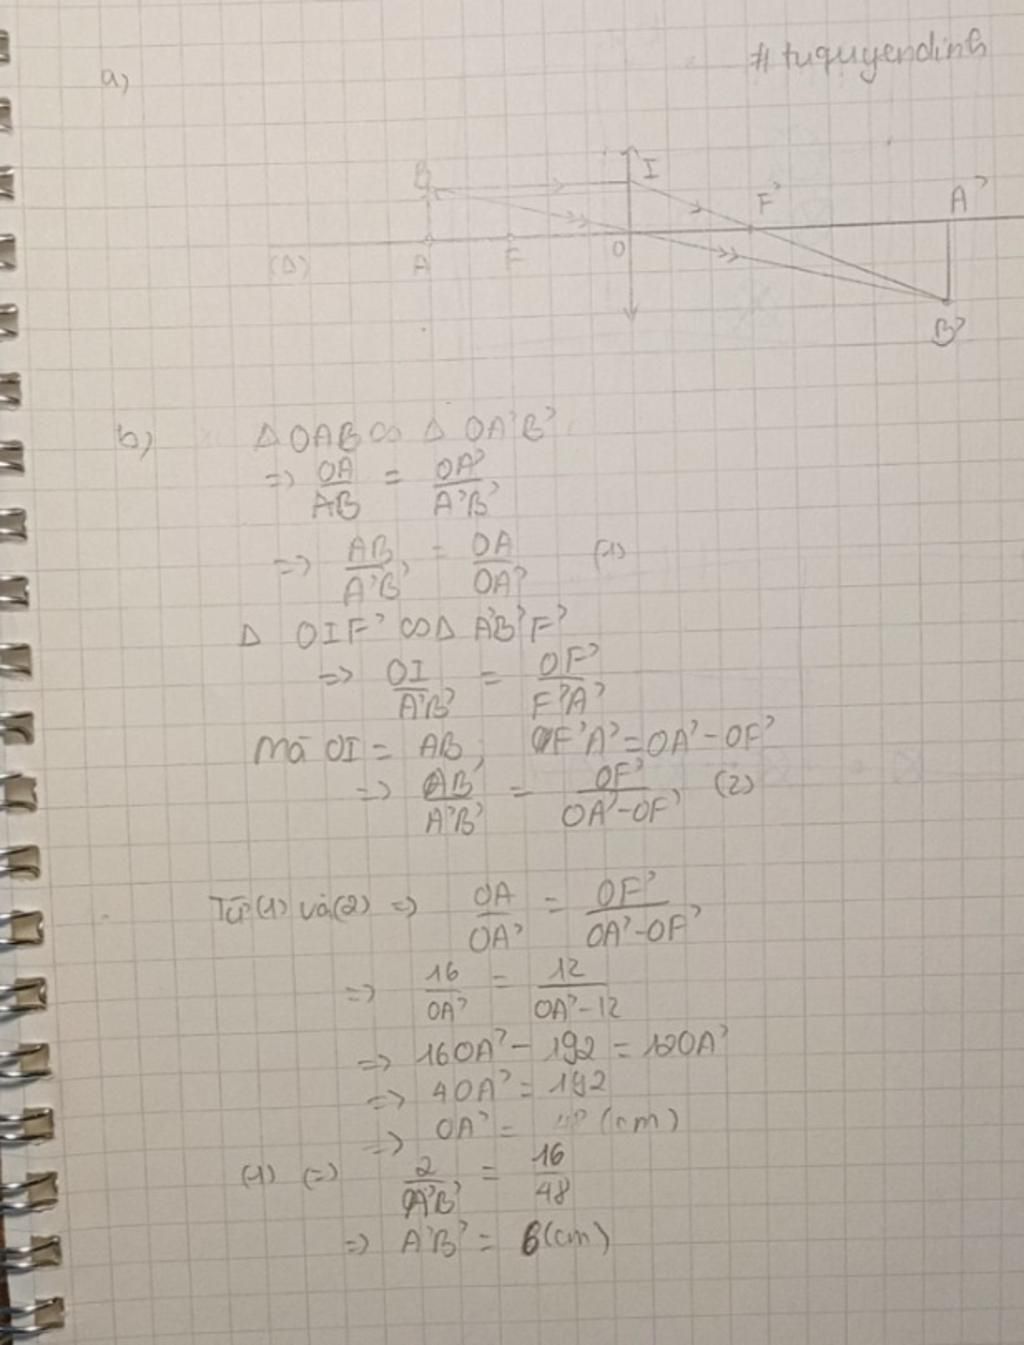 #tuquyendinh
a)
B I F' A'
(Δ) A F O
B'
b) Δ OAB ∽ Δ OA'B'
=> OA/AB = OA'/A'B'
=> AB/A'B' = OA/OA' (1)
Δ OIF' ∽ Δ A'B'F'
=> OI/A'B' = OF'/F'A'
mà OI = AB; F'A' = OA' - OF'
=> AB/A'B' = OF'/OA'-OF' (2)
Từ (1) và (2) => OA/OA' = OF'/OA'-OF'
=> 16/OA' = 12/OA'-12
=> 16OA' - 192 = 12OA'
=> 4OA' = 192
=> OA' = 48 (cm)
(1) (=) 2/A'B' = 16/48
=> A'B' = 6 (cm)